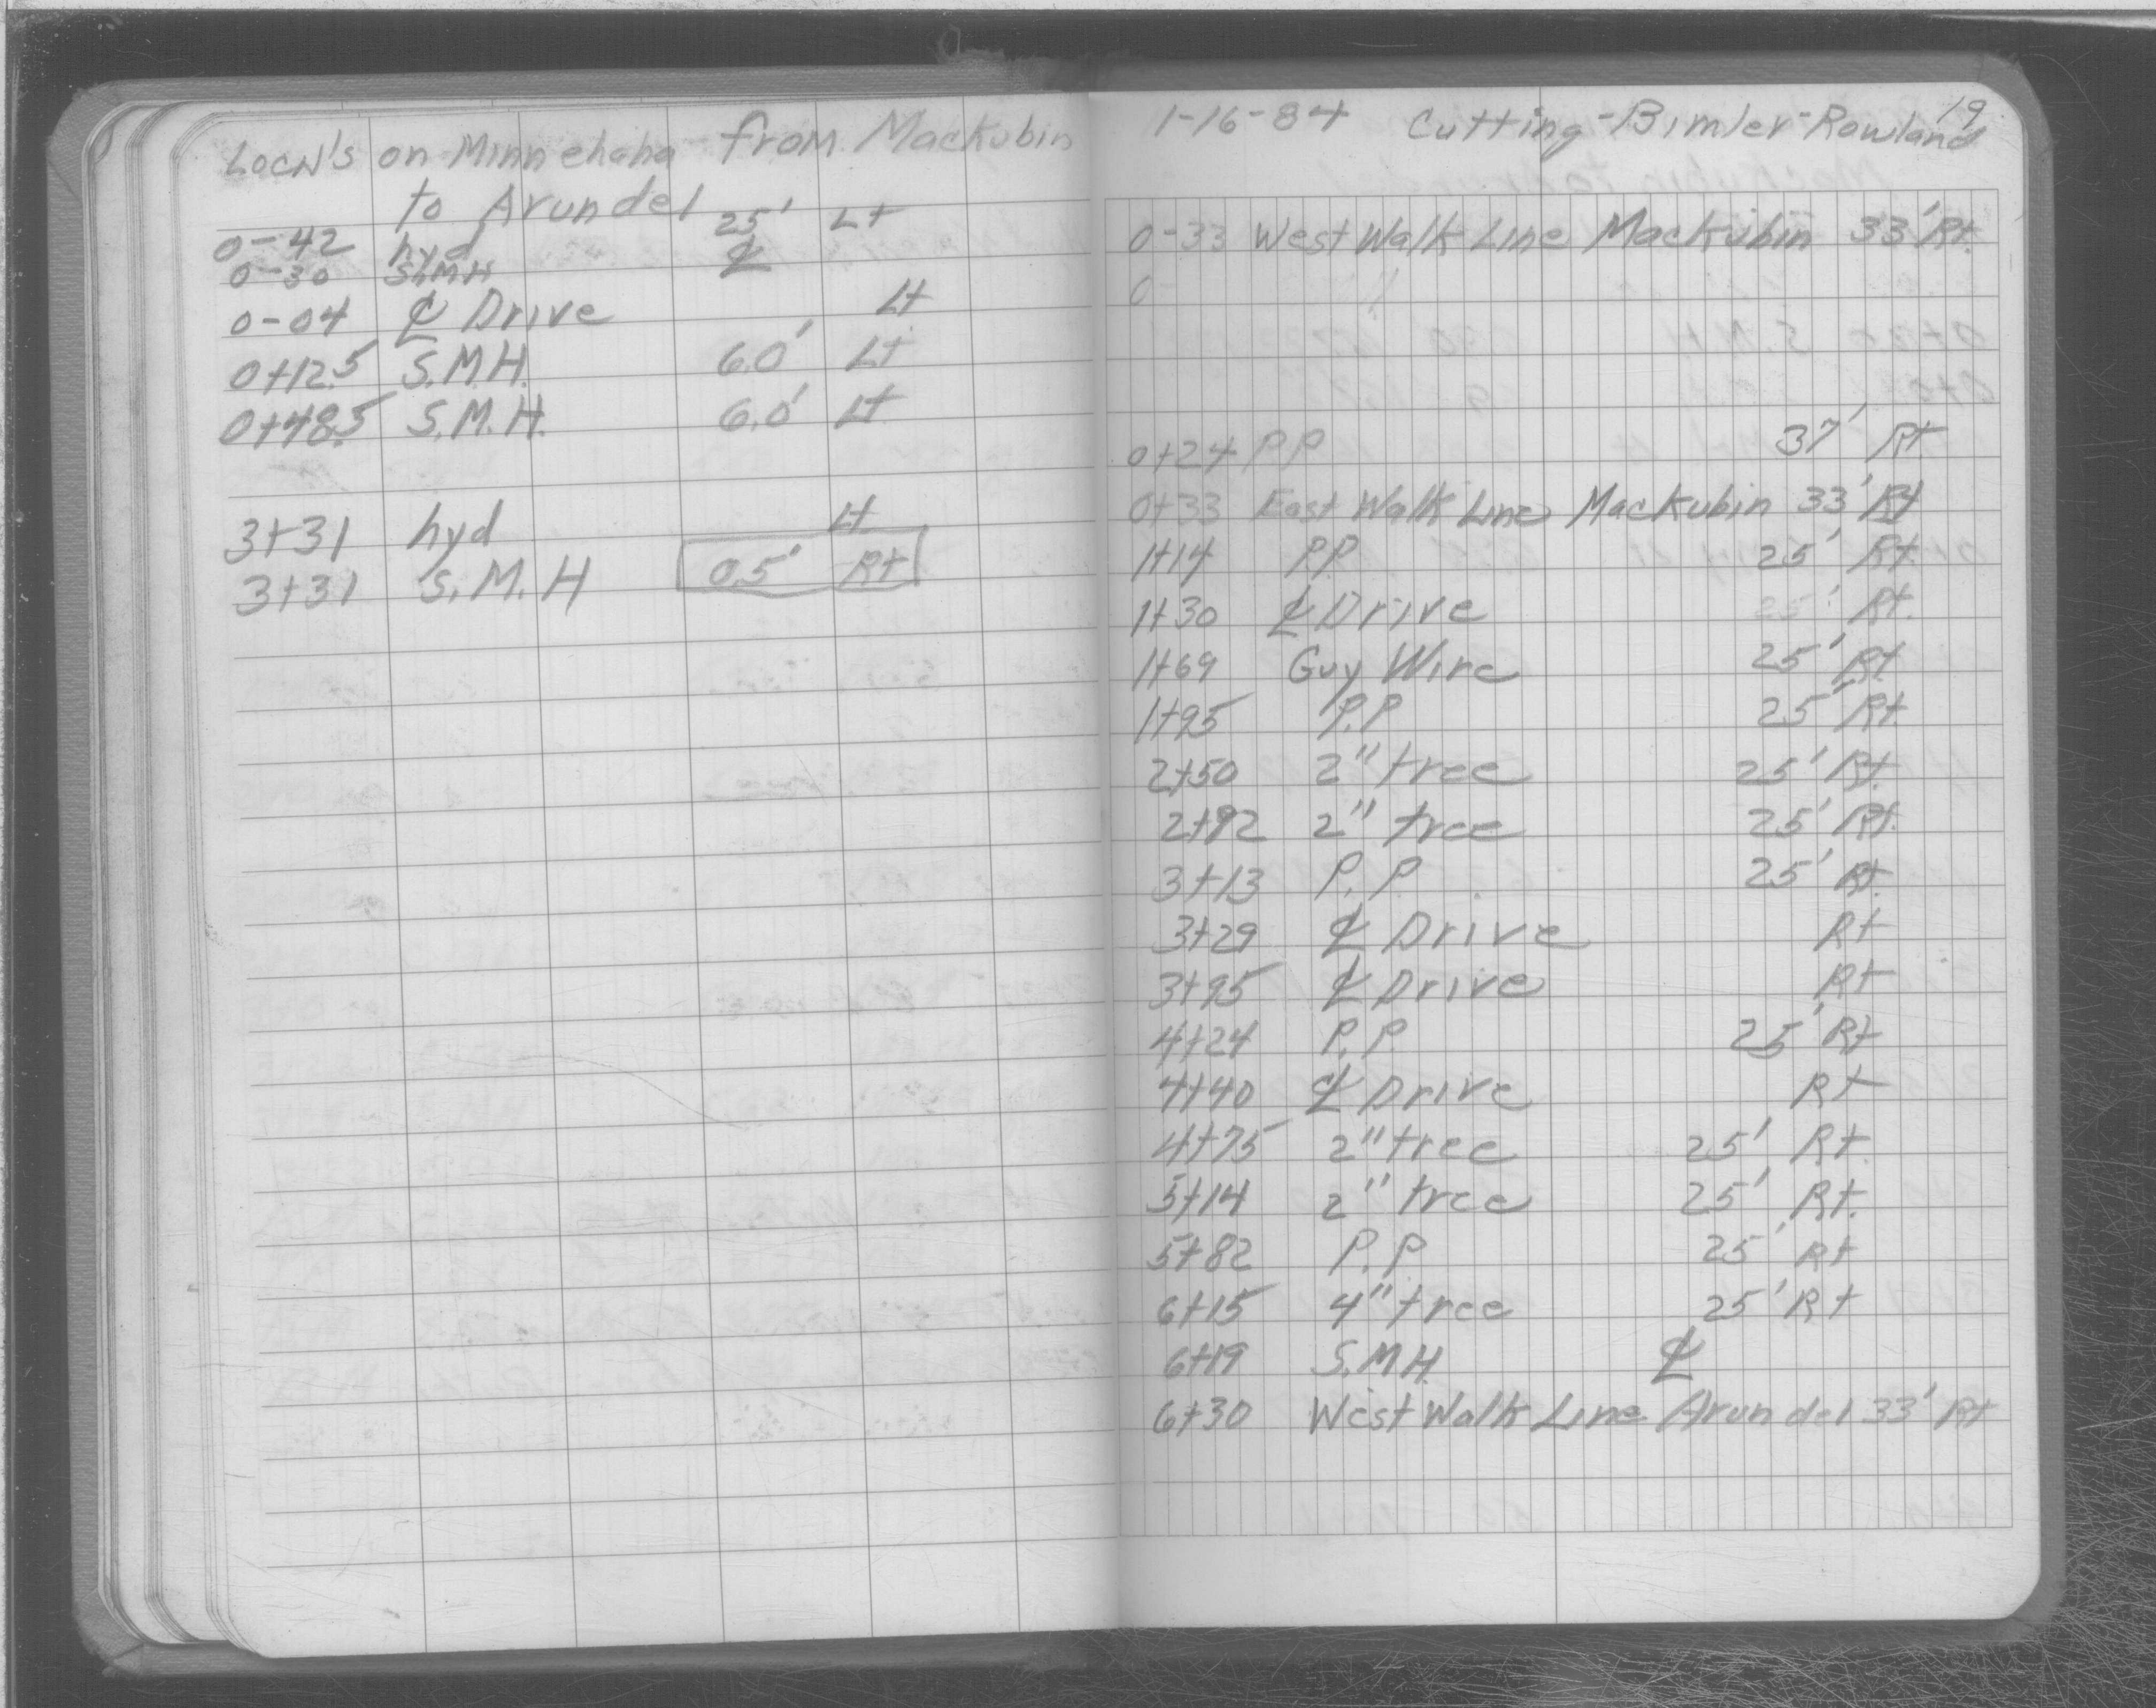 Locn's on Minnehaha from Mackubin
to Arundel
0-42 hyd 25' Lt
0-30 S.M.H ℄
0-04 ℄ Drive Lt
0+12.5 S.M.H. 6.0' Lt
0+48.5 S.M.H. 6.0' Lt
3+31 hyd Lt
3+31 S.M.H 0.5' Rt
19
1-16-84 Cutting-Bimler-Rowland
0-33 West Walk Line Mackubin 33' Rt.
0-
0+24 PP 37' Rt.
0+33 East Walk Line Mackubin 33' Rt
1+14 P.P. 25' Rt.
1+30 ℄ Drive 25' Rt.
1+69 Guy Wire 25' Rt
1+95 P.P 25' Rt
2+50 2" tree 25' Rt.
2+92 2" tree 25' Rt.
3+13 P.P. 25' Rt.
3+29 ℄ Drive Rt
3+95 ℄ Drive Rt
4+24 P.P. 25' Rt
4+40 ℄ Drive Rt
4+75 2" tree 25' Rt.
5+14 2" tree 25' Rt.
5+82 P.P. 25' Rt
6+15 4" tree 25' Rt
6+19 S.M.H. ℄
6+30 West Walk Line Arundel 33' Rt